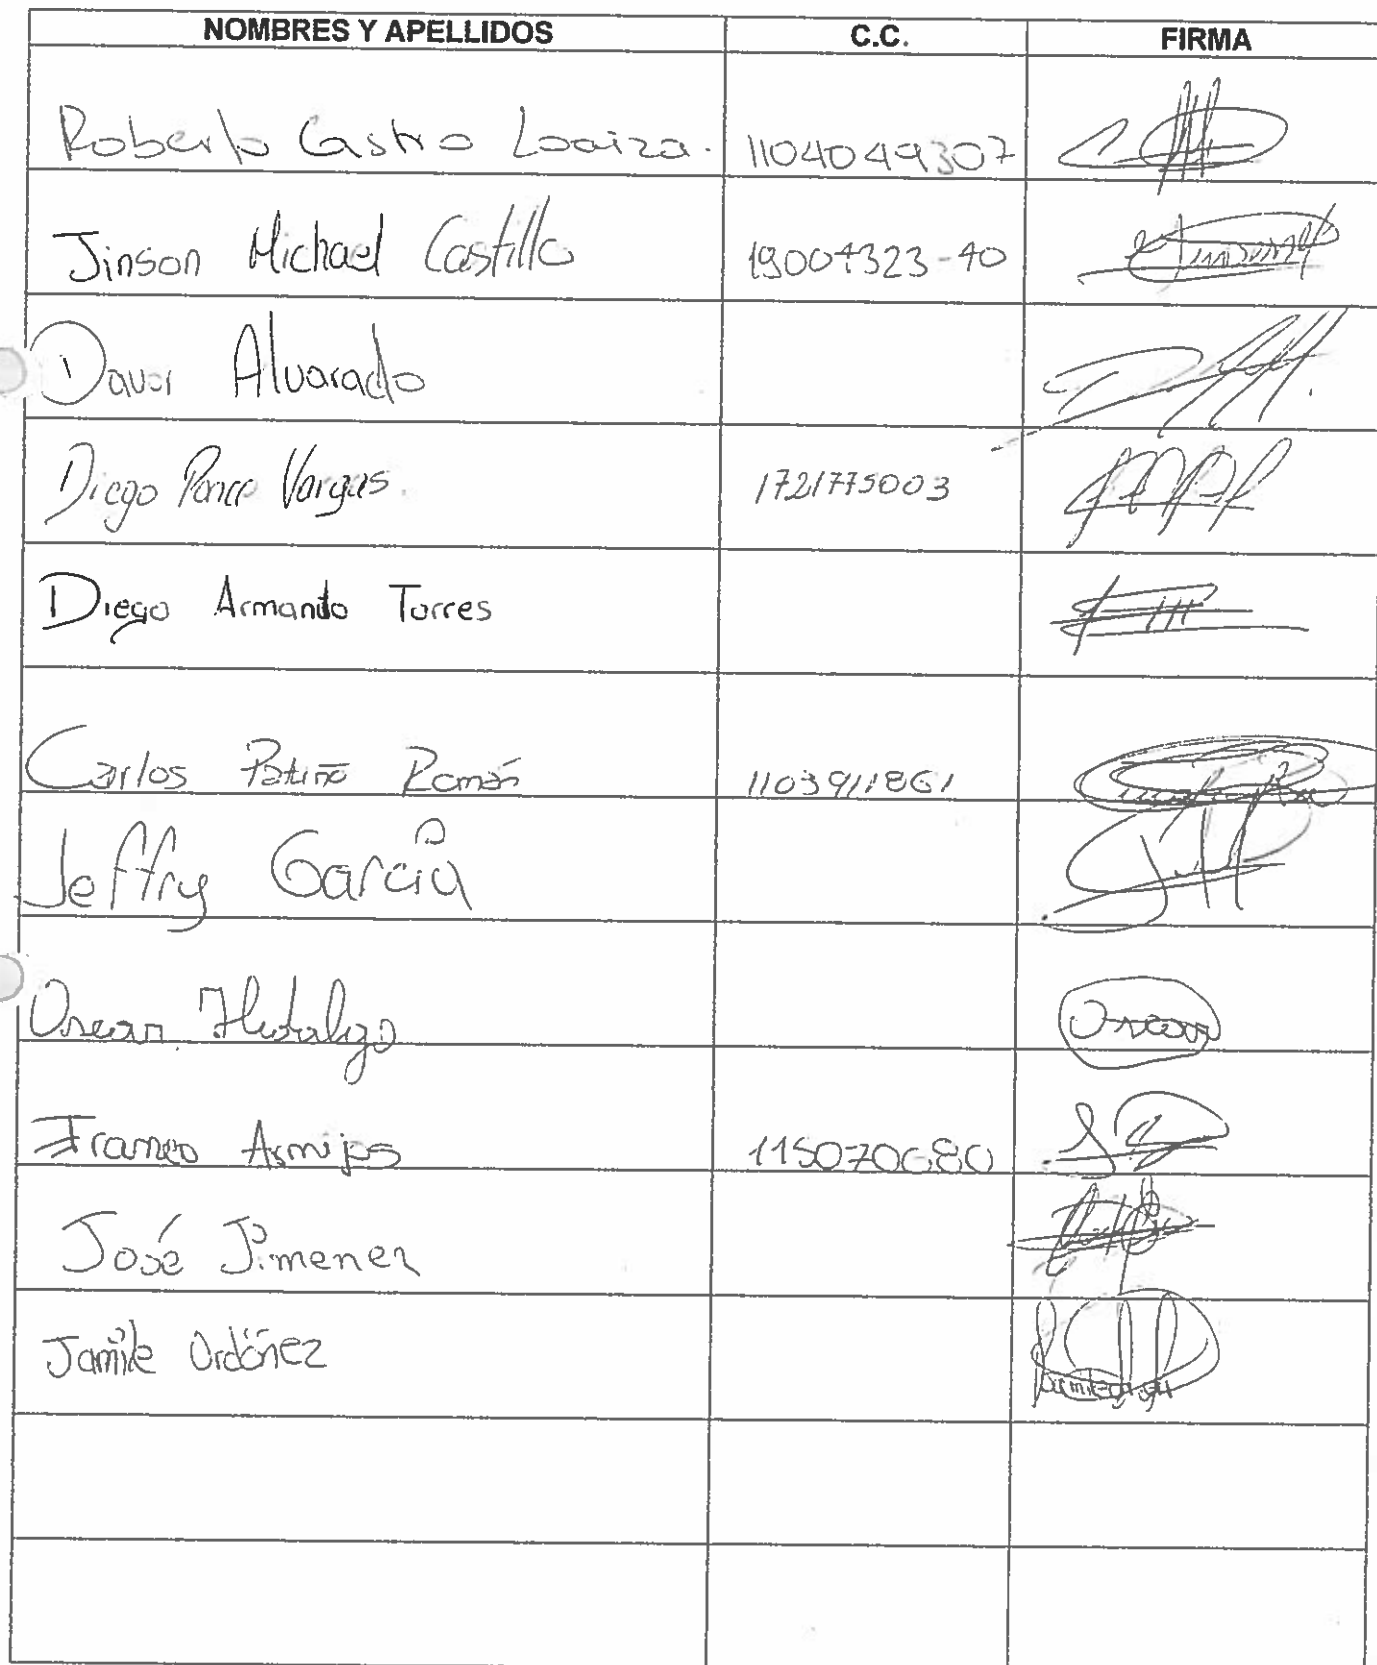 NOMBRES Y APELLIDOS C.C. FIRMA
Roberto Castro Loaiza. 1104049307
Jinson Michael Castillo
Alvarado
Diego Ponce Vargas. 1721775003
Diego Armando Torres
Carlos Patiño Román 1103911861
Jeffry García
Oscar Hidalgo Oscar
Franco Armijos 115070680
José Jimenez
Jamile Ordóñez